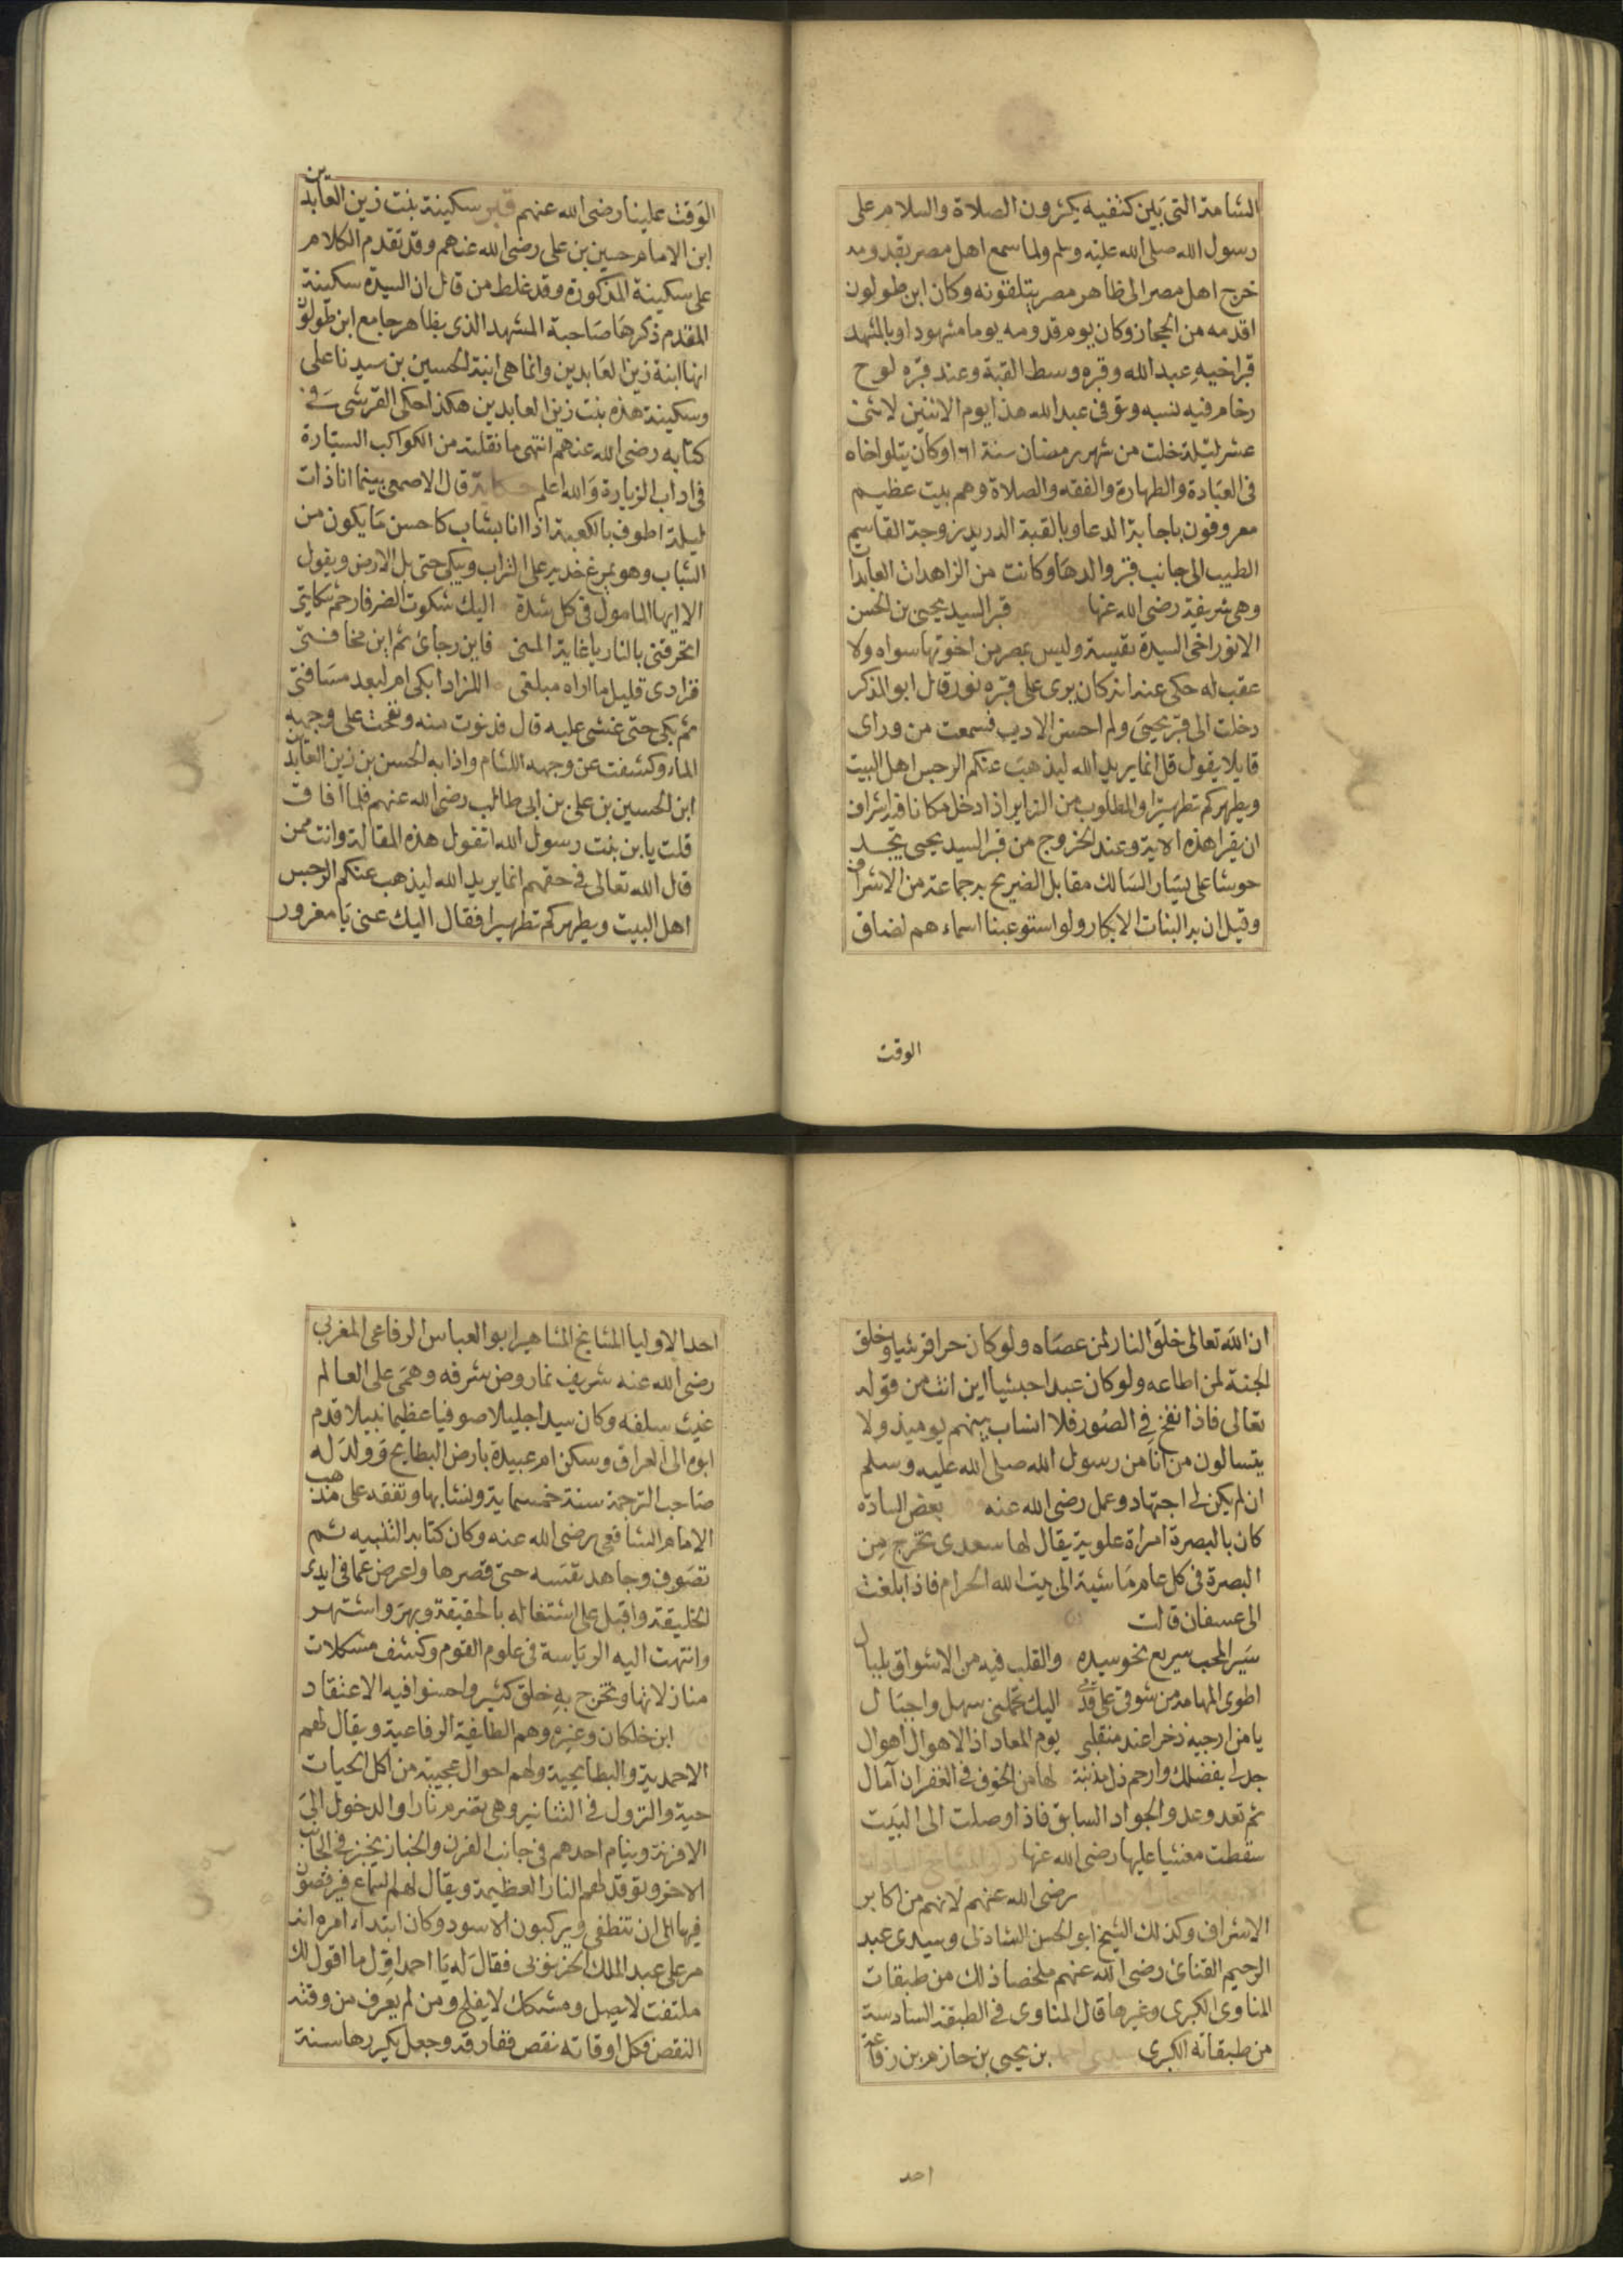 الشامة التى بين كتفيه يكثرون الصلاة والسلام على
رسول الله صلى الله عليه وسلم ولما سمع اهل مصر بقدومه
خرج اهل مصر الى ظاهر مصر يتلقونه وكان ابن طولون
اقدمه من الحجاز وكان يوم قدومه يوما مشهودا وبالمشهد
قبر اخيه عبد الله وقبره وسط القبة وعند قبره لوح
رخام فيه نسبه وتوفى عبد الله هذا يوم الاثنين لاثنى
عشر ليلة خلت من شهر رمضان سنة ٢٦١ وكان يتلو اخاه
فى العبادة والطهارة والفقه والصلاة وهم بيت عظيم
معروفون باجابة الدعا وبالقبة الدرية زوجة القاسم
الطيب الى جانب قبر والدها وكانت من الزاهدات العابدات
وهى شريفة رضى الله عنها قبر السيد يحيى بن الحسن
الانور اخى السيدة نفيسة وليس بمصر من اخوتها سواه ولا
عقب له حكى عنه انه كان يرى على قبره نور قال ابو الذكر
دخلت الى قبر يحيى ولم احسن الادب فسمعت من وراى
قايلا يقول قل انما يريد الله ليذهب عنكم الرجس اهل البيت
ويطهركم تطهيرا والمطلوب من الزاير اذا دخل مكانا فيه اشراف
ان يقرا هذه الاية وعند الخروج من قبر السيد يحيى تجد
حوشا على يسار السالك مقابل الضريح به جماعة من الاشراف
وقيل ان به البنات الابكار ولو استوعبنا اسماءهم لضاق
الوقت
الوقت علينا رضى الله عنهم قبر سكينة بنت زين العابدين
ابن الامام حسين بن على رضى الله عنهم وقد تقدم الكلام
على سكينة المذكورة وقد غلط من قال ان السيدة سكينة
المقدم ذكرها صاحبة المشهد الذى بظاهر جامع ابن طولون
انها ابنة زين العابدين وانما هى ابنة الحسين بن سيدنا على
وسكينة هذه بنت زين العابدين هكذا حكى القرشى فى
كتابه رضى الله عنهم انتهى ما نقلته من الكواكب السيارة
فى اداب الزيارة والله اعلم حكاية قال الاصمعى بينما انا ذات
ليلة اطوف بالكعبة اذا انا بشاب كاحسن ما يكون من
الشباب وهو يمرغ خديه على التراب ويبكى حتى بل الارض ويقول
الا ايها المامول فى كل شدة اليك شكوت الضر فارحم شكايتى
اتحرقنى بالنار يا غاية المنى فاين رجائ ثم اين مخافتى
فزادى قليل ما اراه مبلغى اللزاد ابكى ام لبعد مسافتى
ثم بكى حتى غشى عليه قال فدنوت منه ونفحت على وجهه
الماء وكشفت عن وجهه اللثام واذا به الحسن بن زين العابدين
ابن الحسين بن على بن ابى طالب رضى الله عنهم فلما افاق
قلت يابن بنت رسول الله اتقول هذه المقالة وانت ممن
قال الله تعالى فى حقهم انما يريد الله ليذهب عنكم الرجس
اهل البيت ويطهركم تطهيرا فقال اليك عنى يا مغرور
ان الله تعالى خلق النار لمن عصاه ولو كان حرا قرشيا وخلق
الجنة لمن اطاعه ولو كان عبدا حبشيا اين انت من قوله
تعالى فاذا نفخ فى الصور فلا انساب بينهم يوميذ ولا
يتسالون من انا من رسول الله صلى الله عليه وسلم
ان لم يكن لى اجتهاد وعمل رضى الله عنه بعض السادة
كان بالبصرة امراة علوية يقال لها سعدى تخرج من
البصرة فى كل عام ماشية الى بيت الله الحرام فاذا بلغت
الى عسفان قالت
سير المحب سريع نحو سيده والقلب فيه من الاشواق بلبال
اطوى المهامه من شوق على قدمى اليك تحملنى سهل واجبال
يا من ارجيه ذخرا عند منقلبى يوم المعاد اذ الاهوال اهوال
جد لى بفضلك وارحم ذل مذنبة لها من الخوف فى الغفران آمال
ثم تعدو عدو الجواد السابق فاذا وصلت الى البيت
سقطت مغشيا عليها رضى الله عنها ذكر المشايخ السادات
رضى الله عنهم لانهم من اكابر
الاشراف وكذلك الشيخ ابو الحسن الشاذلى وسيدى عبد
الرحيم القنائ رضى الله عنهم ملخصا ذلك من طبقات
المناوى الكبرى وغيرها قال المناوى فى الطبقة السادسة
من طبقاته الكبرى سيدى احمد بن يحيى بن حازم بن رفاعة
احد
احد الاوليا المشايخ المشاهير ابو العباس الرفاعى المغربى
رضى الله عنه شريف نما روض شرفه وهمى على العالم
غيث سلفه وكان سيدا جليلا صوفيا عظيما نبيلا قدم
ابوه الى العراق وسكن ام عبيدة بارض البطايح وولد له
صاحب الترجمة سنة خمسماية ونشا بها وتفقه على مذهب
الامام الشافعى رضى الله عنه وكان كتابه التنبيه ثم
تصوف وجاهد نفسه حتى قصرها واعرض عما فى ايدى
الخليقة واقبل على اشتغاله بالحقيقة وبهر واشتهر
وانتهت اليه الرياسة فى علوم القوم وكشف مشكلات
منازلاتها وتخرج به خلق كثير واحسنوا فيه الاعتقاد
ابن خلكان وغيره وهم الطايفة الرفاعية ويقال لهم
الاحمدية والبطايحية ولهم احوال عجيبة من اكل الحيات
حية والنزول فى التنانير وهى تضرم نارا والدخول الى
الافرنة وينام احدهم فى جانب الفرن والخباز يخبز فى الجانب
الاخر وتوقد لهم النار العظيمة ويقال لهم السماع فيرقصون
فيها الى ان تنطفى ويركبون الاسود وكان ابتداء امره انه
مر على عبد الملك الخرنوبى فقال له يا احمد اول ما اقول لك
ملتفت لا يصل ومشكك لا يفلح ومن لم يعرف من وقته
النقص فكل اوقاته نقص ففارقه وجعل يكررها سنة